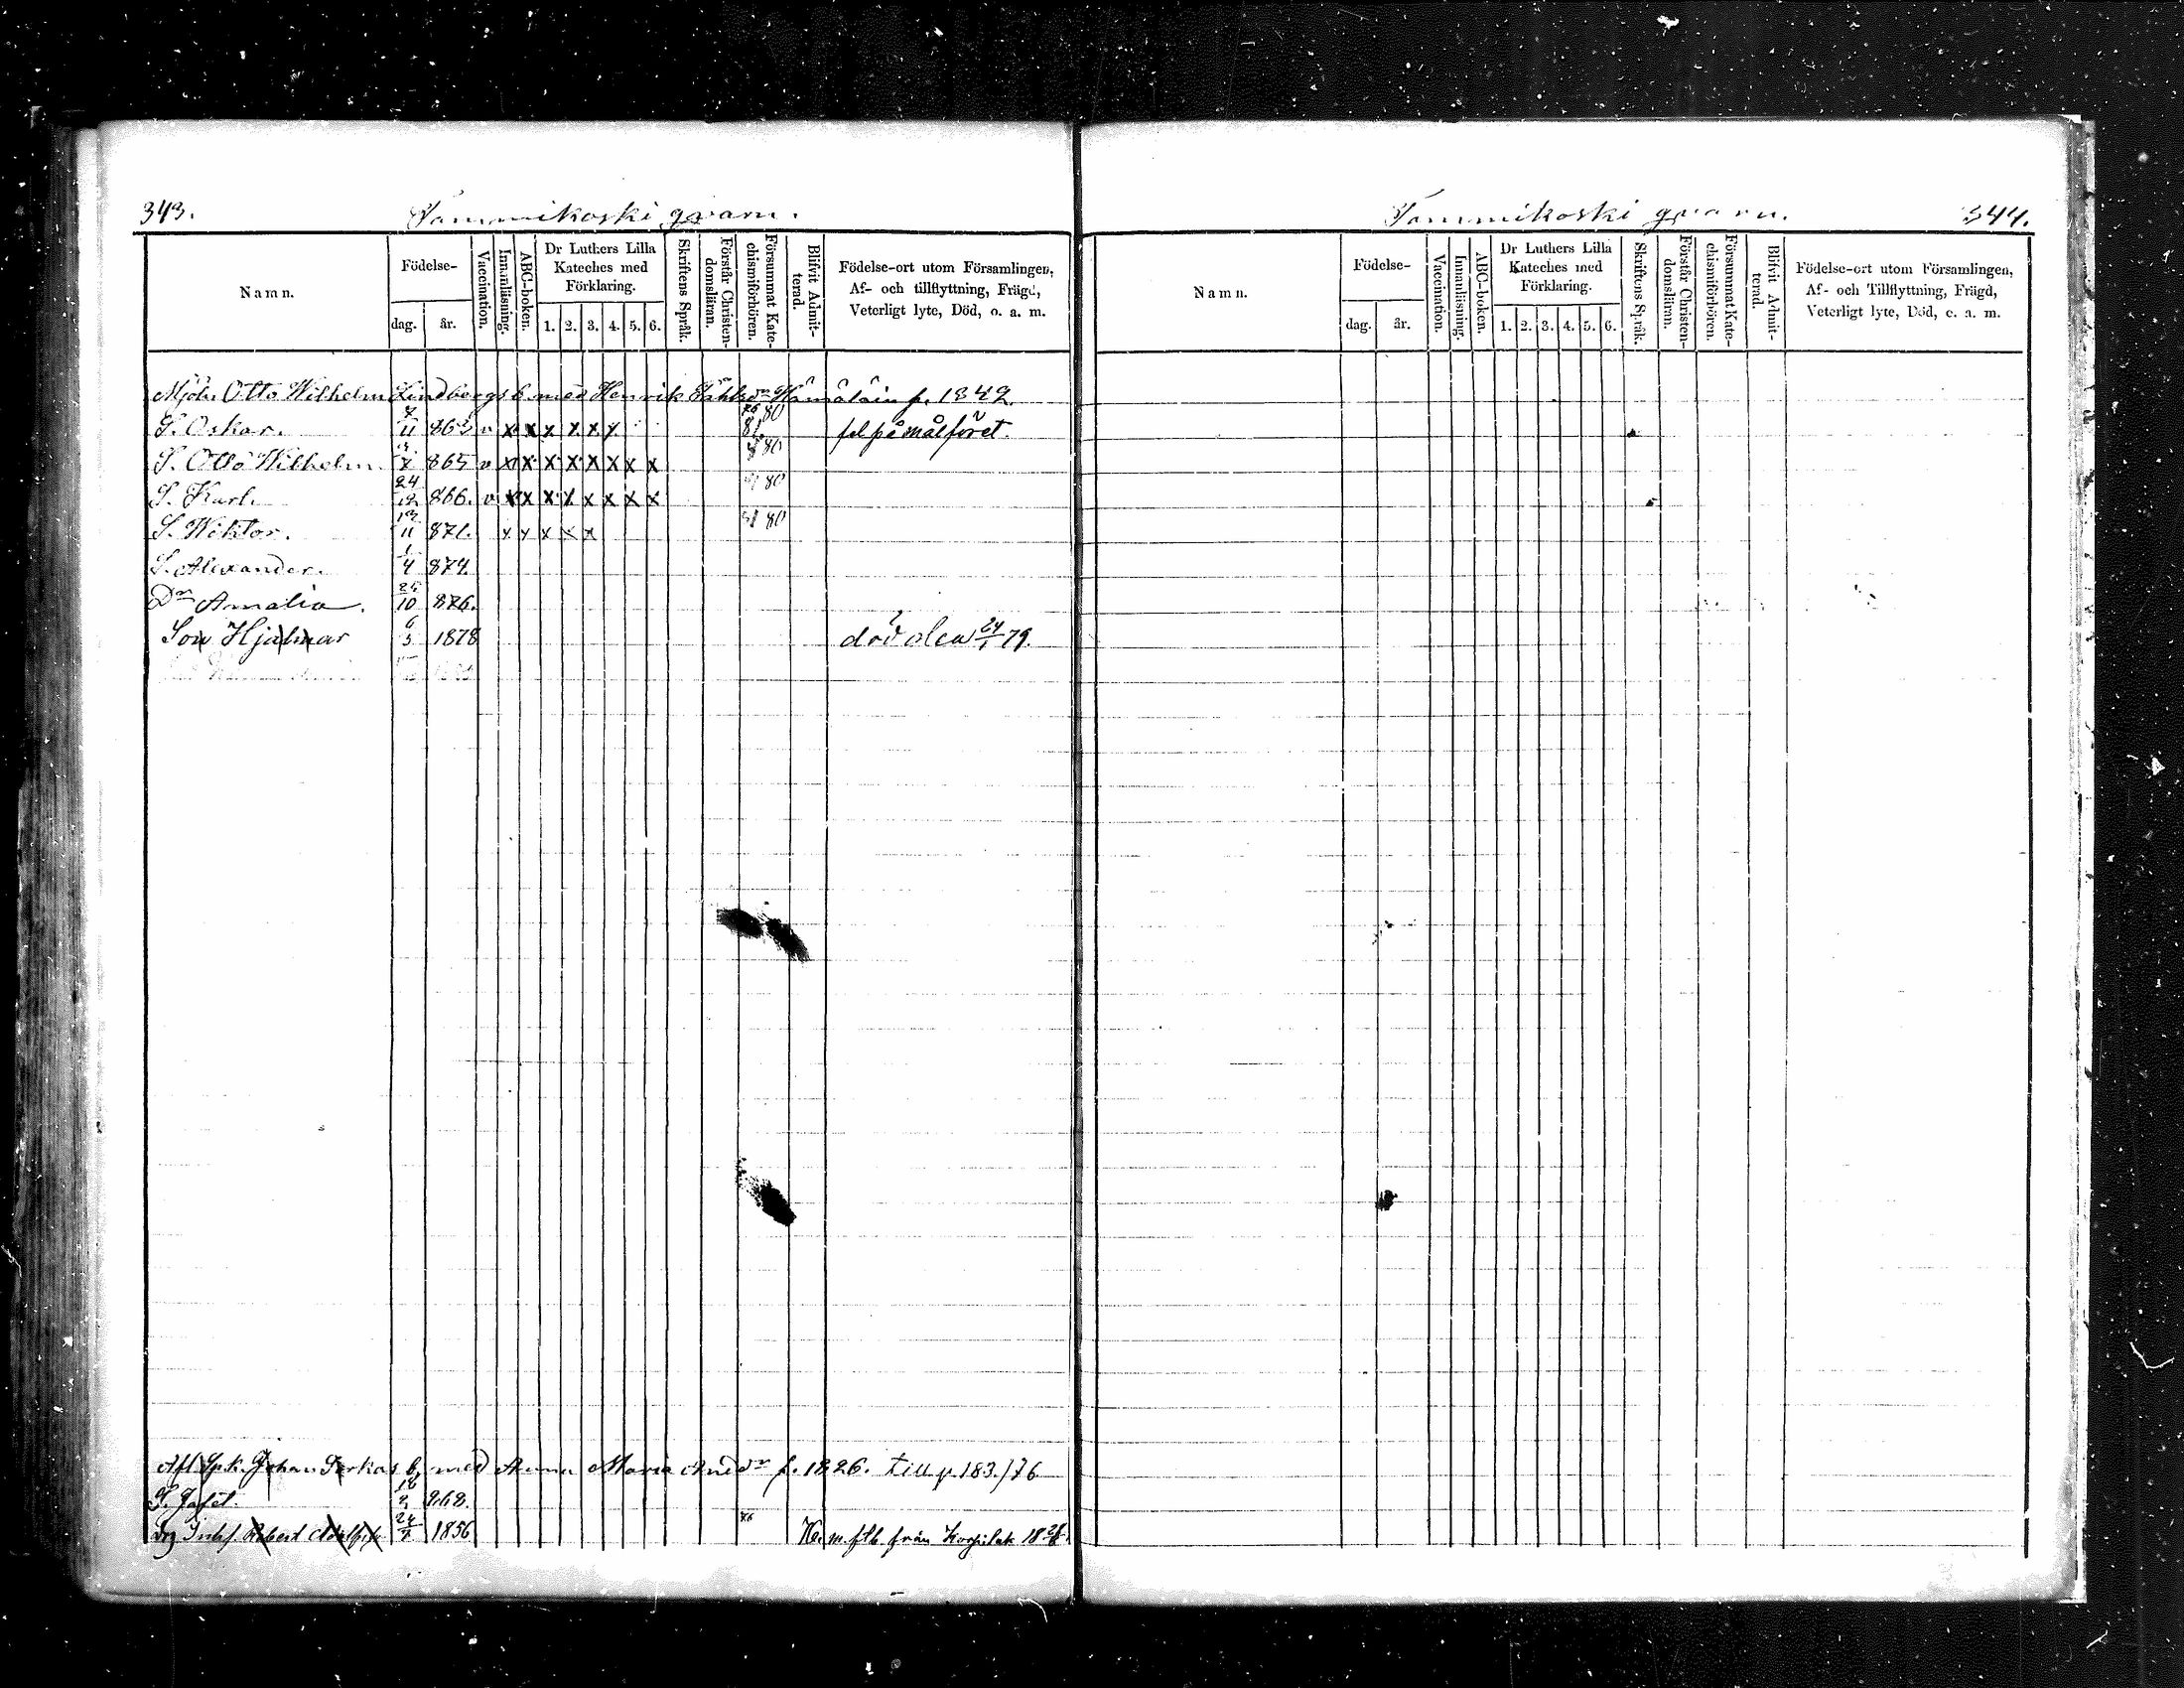 343. Tammikoski qvarn.
Namn. Födelse- dag. år. Vaccination. Innanläsning. ABC-boken. Dr Luthers Lilla Kateches med Förklaring. 1. 2. 3. 4. 5. 6. Skriftens Språk. Förstår Christendomsläran. Försummat Katechismiförhören. Blifvit Admitterad. Födelse-ort utom Församlingen, Af- och tillflyttning, Frägd, Veterligt lyte, Död, o. a. m.
Mjöln. Otto Wilhelm Lindbergs b. med Henrik 1842.
S. Oskar. 7/11 863 v x x x x x x 76 80 81 fel på målföret.
S. Otto Wilhelm. 865 v x x x x x x x x 80
S. Karl. 24/12 866. v x x x x x x x x 80
S. Wiktor. 13/11 871. x x x x x 80
S. Alexander. 1/4 874.
Dr Amalia. 25/10 876.
Son Hjalmar 6/3 1878 död 24/1 79.
Afl. Johan b. med Anna Maria And dr f. 1826. till p. 183./76
S. Jafet. 868.
Robert Adolf 24 1856 76 från
Tammikoski qvarn. 344.
Namn. Födelse- dag. år. Vaccination. Innanläsning. ABC-boken. Dr Luthers Lilla Kateches med Förklaring. 1. 2. 3. 4. 5. 6. Skriftens Språk. Förstår Christendomsläran. Försummat Katechismiförhören. Blifvit Admitterad. Födelse-ort utom Församlingen, Af- och Tillflyttning, Frägd, Veterligt lyte, Död, o. a. m.